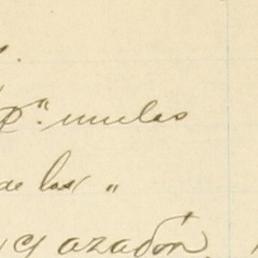 pª. mulas
de las "
y azadón